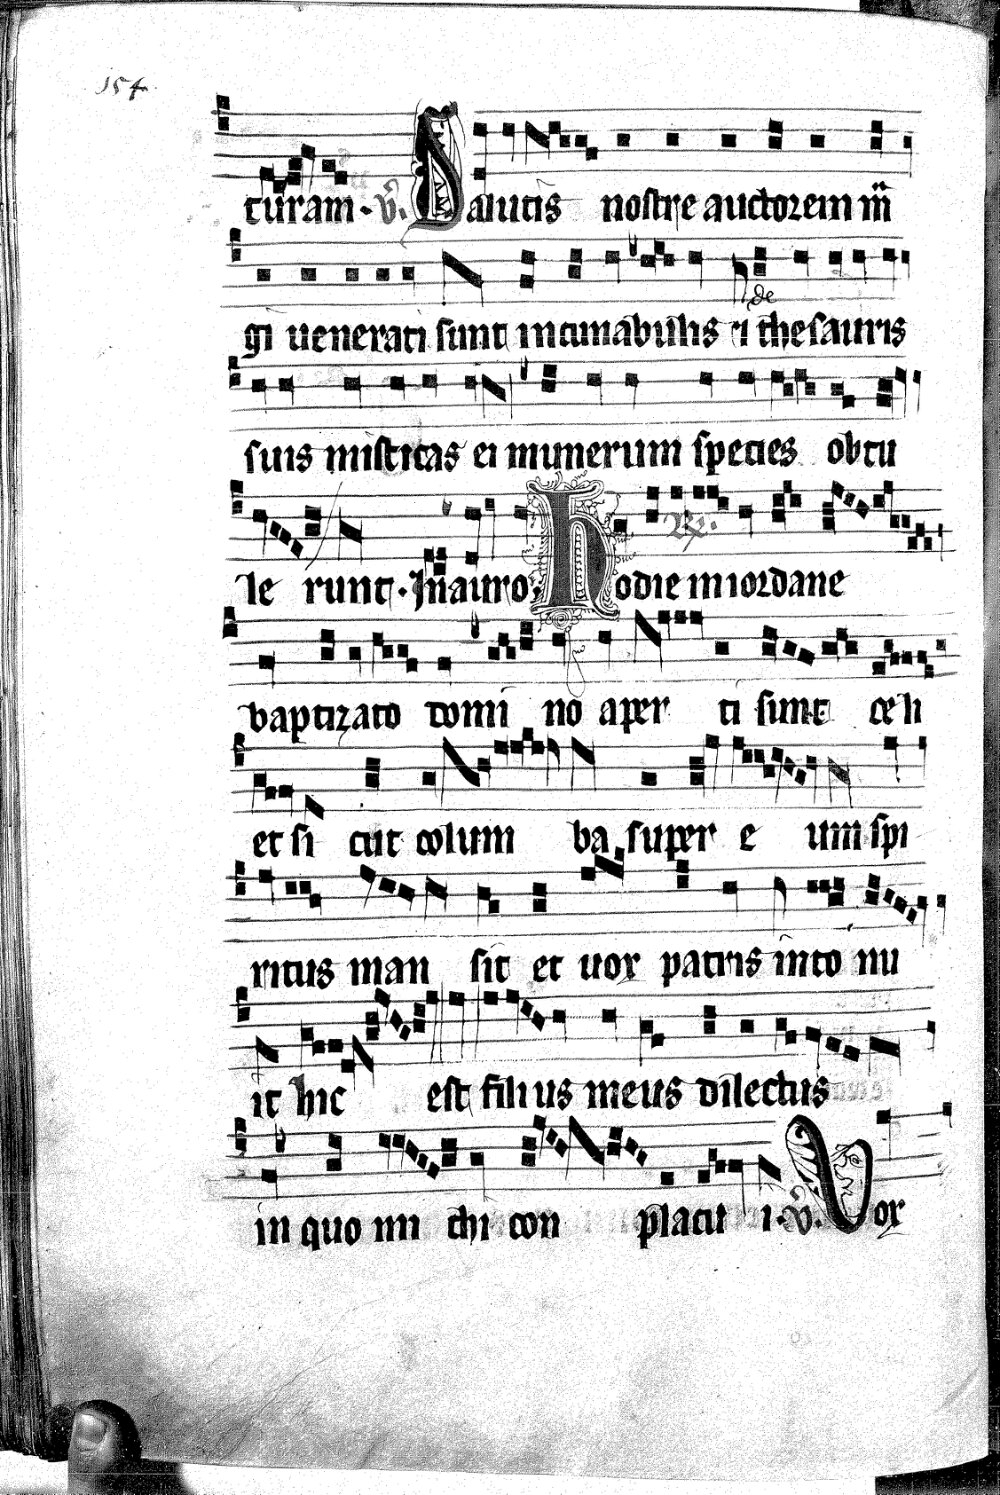 154
turam · v̄. Salutis nostre auctorem m̄
gi uenerati sunt incunabulis de thesauris
suis misticas ei munerum species obtu
le runt · Inauro · R̄. Hodie in iordane
baptizato domi no aper ti sunt celi
et si cut colum ba super e um spi
ritus man sit et uox patris into nu
it hic est filius meus dilectus
in quo mi chi con placu i · v̄. Vox